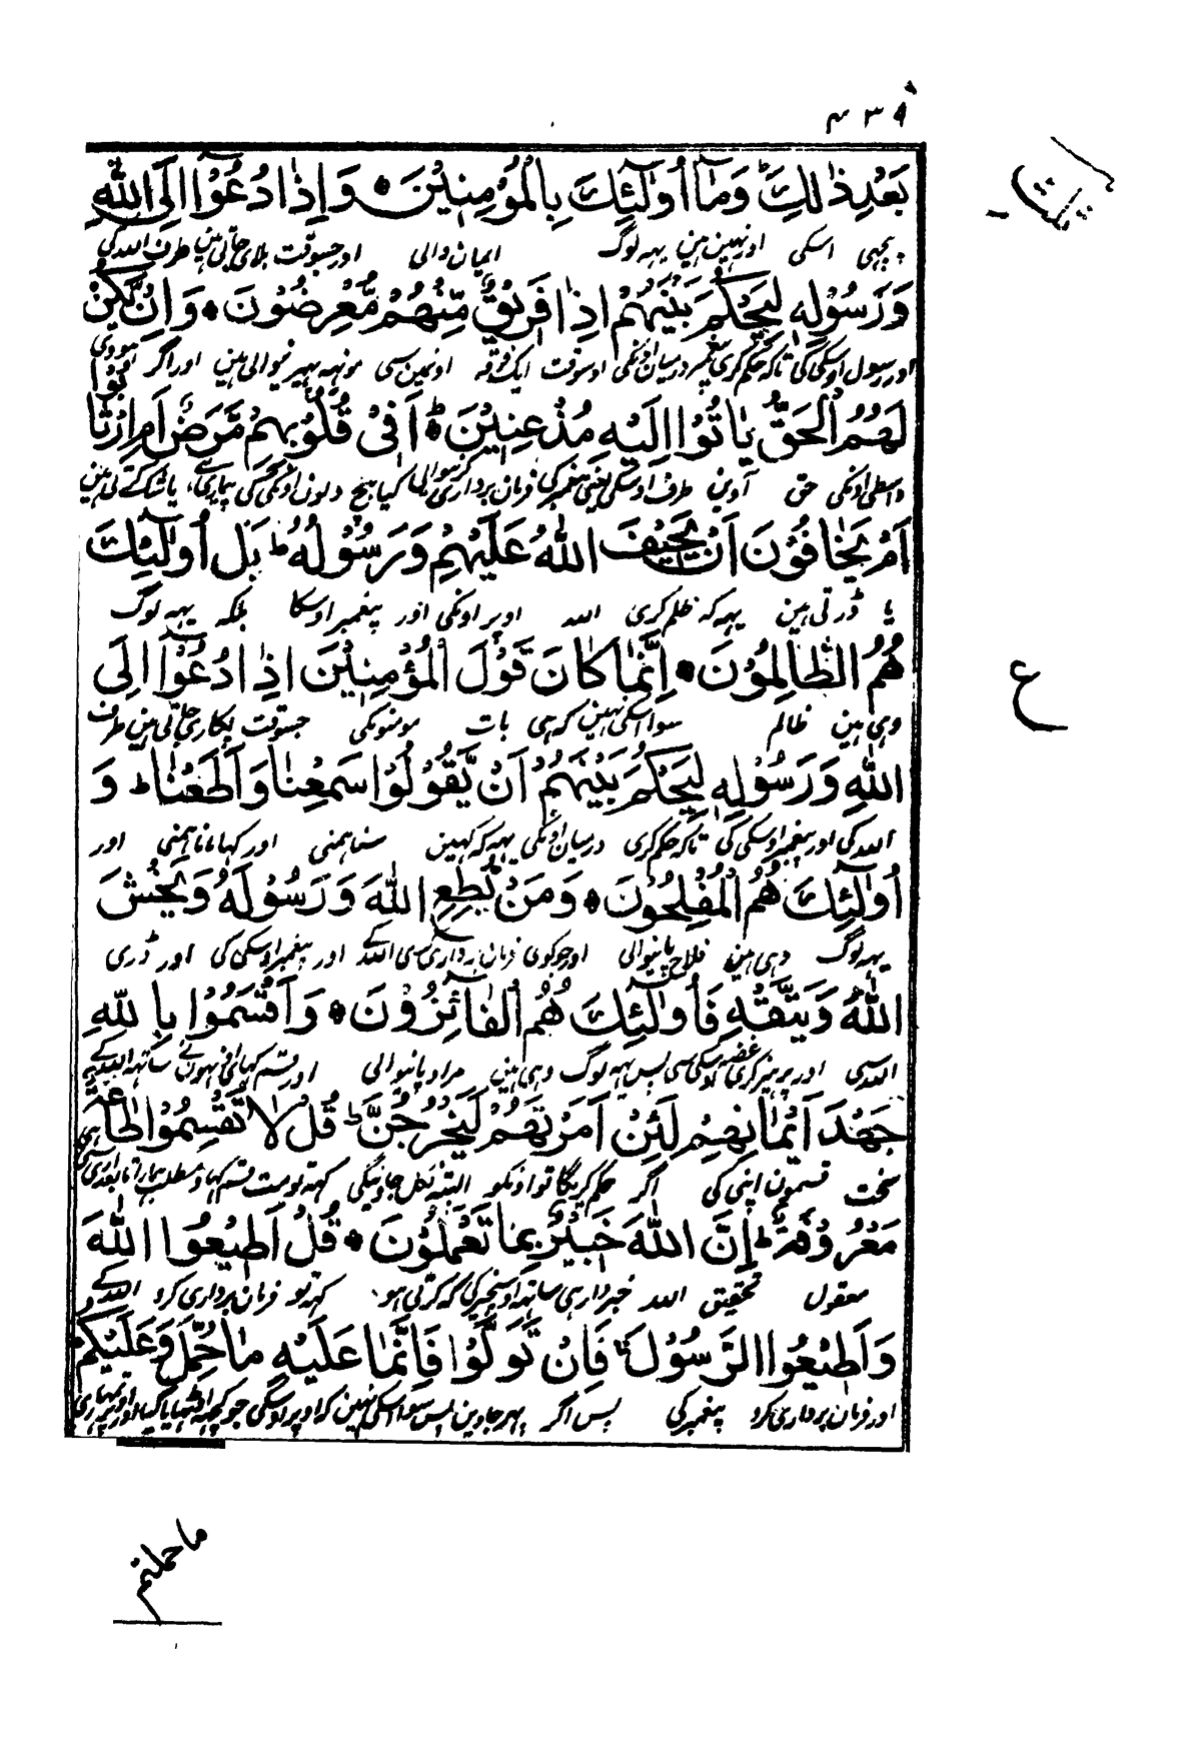 ۴۳۹
ثلث
بَعْدِ ذٰلِكَ ؕ وَمَاۤ اُولٰٓئِكَ بِالْمُؤْمِنِيْنَ ۞ وَاِذَا دُعُوْۤا اِلَى اللّٰهِ
پیچہی اسکی اور نہین ہین یہہ لوگ ایمان والی اور جسوقت بلائی جاتی ہین طرف اللہ کی
وَرَسُوْلِهٖ لِيَحْكُمَ بَيْنَهُمْ اِذَا فَرِيْقٌ مِّنْهُمْ مُّعْرِضُوْنَ ۞ وَاِنْ يَّكُنْ
اور رسول اوسکی کی تاکہ حکم کری پیغمبر درمیان اونکی اوسوقت ایک فرقہ اونمین سی مونہہ پہیرنیوالی ہین اور اگر ہووی
لَّهُمُ الْحَقُّ يَاْتُوْۤا اِلَيْهِ مُذْعِنِيْنَ ؕ اَفِيْ قُلُوْبِهِمْ مَّرَضٌ اَمِ ارْتَابُوْۤا
واسطی اونکی حق آوین طرف اوسکی یعنی پیغمبر کی فرمان برداری کرنیوالی کیا بیچ دلون اونکی کی بیماری ہے، یا شک کرتی ہین
اَمْ يَخَافُوْنَ اَنْ يَّحِيْفَ اللّٰهُ عَلَيْهِمْ وَرَسُوْلُهٗ ؕ بَلْ اُولٰٓئِكَ
یا ڈرتی ہین یہہ کہ ظلم کری اللہ اوپر اونکی اور پیغمبر اوسکا بلکہ یہہ لوگ
هُمُ الظّٰلِمُوْنَ ۞ اِنَّمَا كَانَ قَوْلَ الْمُؤْمِنِيْنَ اِذَا دُعُوْۤا اِلَى
ع
وہی ہین ظالم سوا اسکی نہین کہ ہی بات مومنونکی جسوقت پکاری جاتی ہین طرف
اللّٰهِ وَرَسُوْلِهٖ لِيَحْكُمَ بَيْنَهُمْ اَنْ يَّقُوْلُوْا سَمِعْنَا وَاَطَعْنَا ؕ وَ
اللہ کی اور پیغمبر اوسکی کی تاکہ حکم کری درمیان اونکی یہہ کہ کہین سنا ہمنی اور کہا مانا ہمنی اور
اُولٰٓئِكَ هُمُ الْمُفْلِحُوْنَ ۞ وَمَنْ يُّطِعِ اللّٰهَ وَرَسُوْلَهٗ وَيَخْشَ
یہہ لوگ وہی ہین فلاح پانیوالی اور جو کوی فرمان برداری کری اللہ کے اور پیغمبر اوسکی کی اور ڈری
اللّٰهَ وَيَتَّقْهِ فَاُولٰٓئِكَ هُمُ الْفَآئِزُوْنَ ۞ وَاَقْسَمُوْا بِاللّٰهِ
اللہ سی اور پرہیزگری غضب اوسکی سی پس یہہ لوگ وہی ہین مراد پانیوالی اور قسم کہائی انہون نے ساتہہ اللہ کے
جَهْدَ اَيْمَانِهِمْ لَئِنْ اَمَرْتَهُمْ لَيَخْرُجُنَّ ؕ قُلْ لَّا تُقْسِمُوْا ۚ طَاعَةٌ
سخت قسمون اپنی کی اگر حکم کریگا تو اونکو البتہ نکل جاوینگی کہہ تو مت قسم کہاو مطلب ہمارا تابعداری ہی
مَّعْرُوْفَةٌ ؕ اِنَّ اللّٰهَ خَبِيْرٌۢ بِمَا تَعْمَلُوْنَ ۞ قُلْ اَطِيْعُوا اللّٰهَ
معقول تحقیق اللہ خبردار ہی ساتہہ اوس چیز کی کہ کرتی ہو۔ کہہ تو فرمان برداری کرو اللہ کے
وَاَطِيْعُوا الرَّسُوْلَ ۚ فَاِنْ تَوَلَّوْا فَاِنَّمَا عَلَيْهِ مَا حُمِّلَ وَعَلَيْكُمْ
اور فرمان برداری کرو پیغمبر کی پس اگر پہر جاوین پس سوا اسکی نہین کہ اوپر اوسکی جو کچہہ اوٹہایا گیا اور اوپر تمہاری
ما حملتم